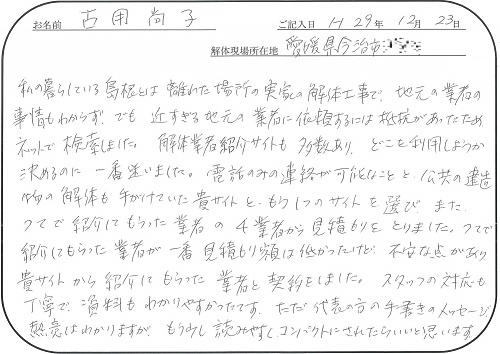 お名前 古用 尚子 ご記入日 H 29年 12月 23日
解体現場所在地 愛媛県今治市
私の暮らしている島根とは離れた場所の実家の解体工事で、地元の業者の
事情もわからず、でも近すぎる地元の業者に依頼するには抵抗があったため
ネットで検索しました。解体業者紹介サイトも多数あり、どこを利用しようか
決めるのに一番迷いました。電話のみの連絡が可能なことと、公共の建造
物の解体も手がけていた貴サイトと、もう1つのサイトを選び、また、
つてで紹介してもらった業者の4業者から見積もりをとりました。つてで
紹介してもらった業者が一番見積もり額は低かったけど、不安な点があり
貴サイトから紹介してもらった業者と契約をしました。スタッフの対応も
丁寧で、資料もわかりやすかったです。ただ代表の方の手書きのメッセージ、
熱意はわかりますが、もう少し読みやすく、コンパクトにされたらいいと思います。